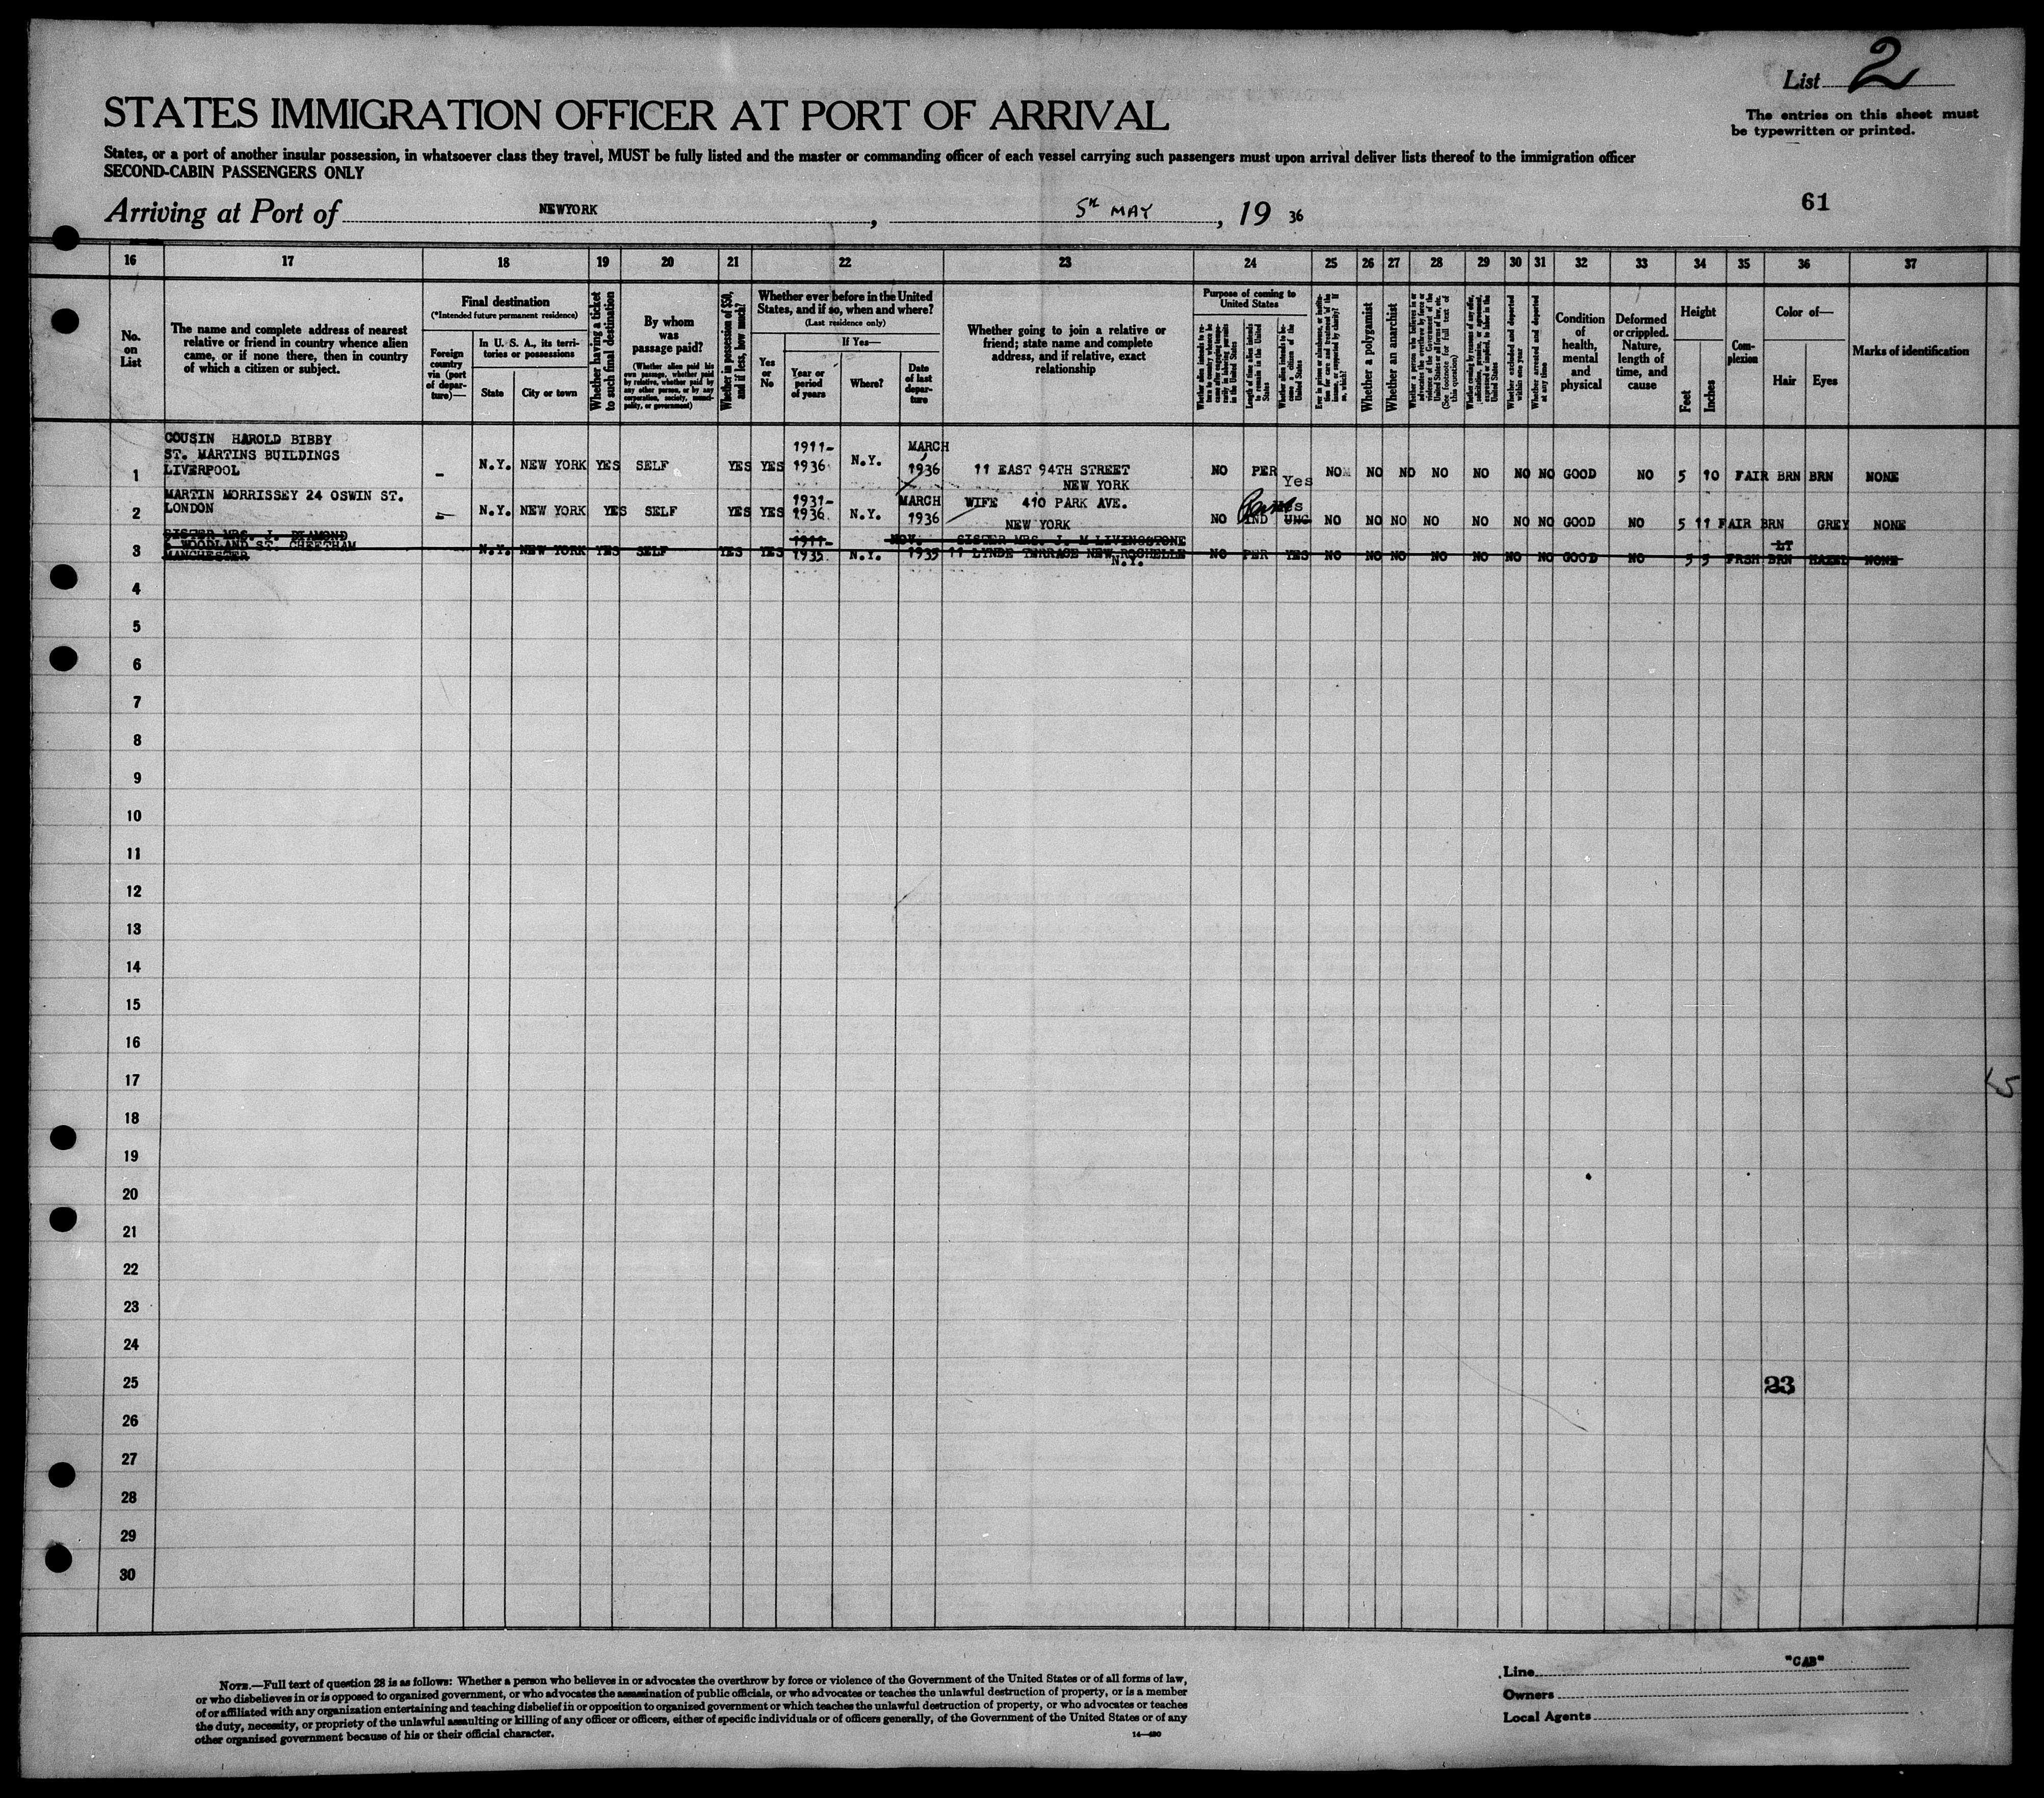 List 2
The entries on this sheet must
be typewritten or printed.
STATES IMMIGRATION OFFICER AT PORT OF ARRIVAL
States, or a port of another insular possession, in whatsoever class they travel, MUST be fully listed and the master or commanding officer of each vessel carrying such passengers must upon arrival deliver lists thereof to the immigration officer
SECOND-CABIN PASSENGERS ONLY
61
Arriving at Port of NEWYORK, 5TH MAY, 19 36
16 17 18 19 20 21 22 23 24 25 26 27 28 29 30 31 32 33 34 35 36 37
No.
on
List
The name and complete address of nearest
relative or friend in country whence alien
came, or if none there, then in country
of which a citizen or subject.
Final destination
(*Intended future permanent residence)
Foreign
country
via (port
of depar-
ture)—
In U. S. A., its terri-
tories or possessions
State
City or town
Whether having a ticket
to such final destination
By whom
was
passage paid?
(Whether alien paid his
own passage, whether paid
by relative, whether paid by
any other person, or by any
corporation, society, munici-
pality, or government)
Whether in possession of $50,
and if less, how much?
Whether ever before in the United
States, and if so, when and where?
(Last residence only)
Yes
or
No
If Yes—
Year or
period
of years
Where?
Date
of last
depar-
ture
Whether going to join a relative or
friend; state name and complete
address, and if relative, exact
relationship
Purpose of coming to
United States
Whether alien intends to re-
turn to country whence he
came after engaging tempo-
rarily in laboring pursuits
in the United States
Length of time alien intends
to remain in the United
States
Whether alien intends to be-
come a citizen of the
United States
Ever in prison or almshouse, or institu-
tion for care and treatment of the
insane, or supported by charity? If
so, which?
Whether a polygamist
Whether an anarchist
Whether a person who believes in or
advocates the overthrow by force or
violence of the Government of the
United States or all forms of law, etc.
(See footnote for full text of
this question)
Whether coming by reason of any offer,
solicitation, promise, or agreement,
expressed or implied, to labor in the
United States
Whether excluded and deported
within one year
Whether arrested and deported
at any time
Condition
of
health,
mental
and
physical
Deformed
or crippled.
Nature,
length of
time, and
cause
Height
Feet
Inches
Com-
plexion
Color of—
Hair
Eyes
Marks of identification
COUSIN HAROLD BIBBY
ST. MARTINS BUILDINGS
1 LIVERPOOL - N.Y. NEW YORK YES SELF YES YES 1911-1936 N.Y. MARCH 1936 11 EAST 94TH STREET NEW YORK NO PER Yes NO NO NO NO NO NO NO GOOD NO 5 10 FAIR BRN BRN NONE
MARTIN MORRISSEY 24 OSWIN ST.
2 LONDON - N.Y. NEW YORK YES SELF YES YES 1931-1936 N.Y. MARCH 1936 WIFE 410 PARK AVE. NEW YORK NO IND UNC NO NO NO NO NO NO NO GOOD NO 5 11 FAIR BRN GREY NONE
SISTER MRS. J. DIAMOND
WOODLAND ST. CHEETHAM
3 MANCHESTER N.Y. NEW YORK YES SELF YES YES 1911-1935 N.Y. NOV. 1935 SISTER MRS. J. M LIVINGSTONE 11 LYNDE TERRACE NEW ROCHELLE N.Y. NO PER YES NO NO NO NO NO NO NO GOOD NO 5 5 FRSH LT BRN HAZEL NONE
4
5
6
7
8
9
10
11
12
13
14
15
16
17
18
19
20
21
22
23
24
25 23
26
27
28
29
30
NOTE.—Full text of question 28 is as follows: Whether a person who believes in or advocates the overthrow by force or violence of the Government of the United States or of all forms of law,
or who disbelieves in or is opposed to organized government, or who advocates the assassination of public officials, or who advocates or teaches the unlawful destruction of property, or is a member
of or affiliated with any organization entertaining and teaching disbelief in or opposition to organized government or which teaches the unlawful destruction of property, or who advocates or teaches
the duty, necessity, or propriety of the unlawful assaulting or killing of any officer or officers, either of specific individuals or of officers generally, of the Government of the United States or of any
other organized government because of his or their official character.
14—480
Line "CAB"
Owners
Local Agents